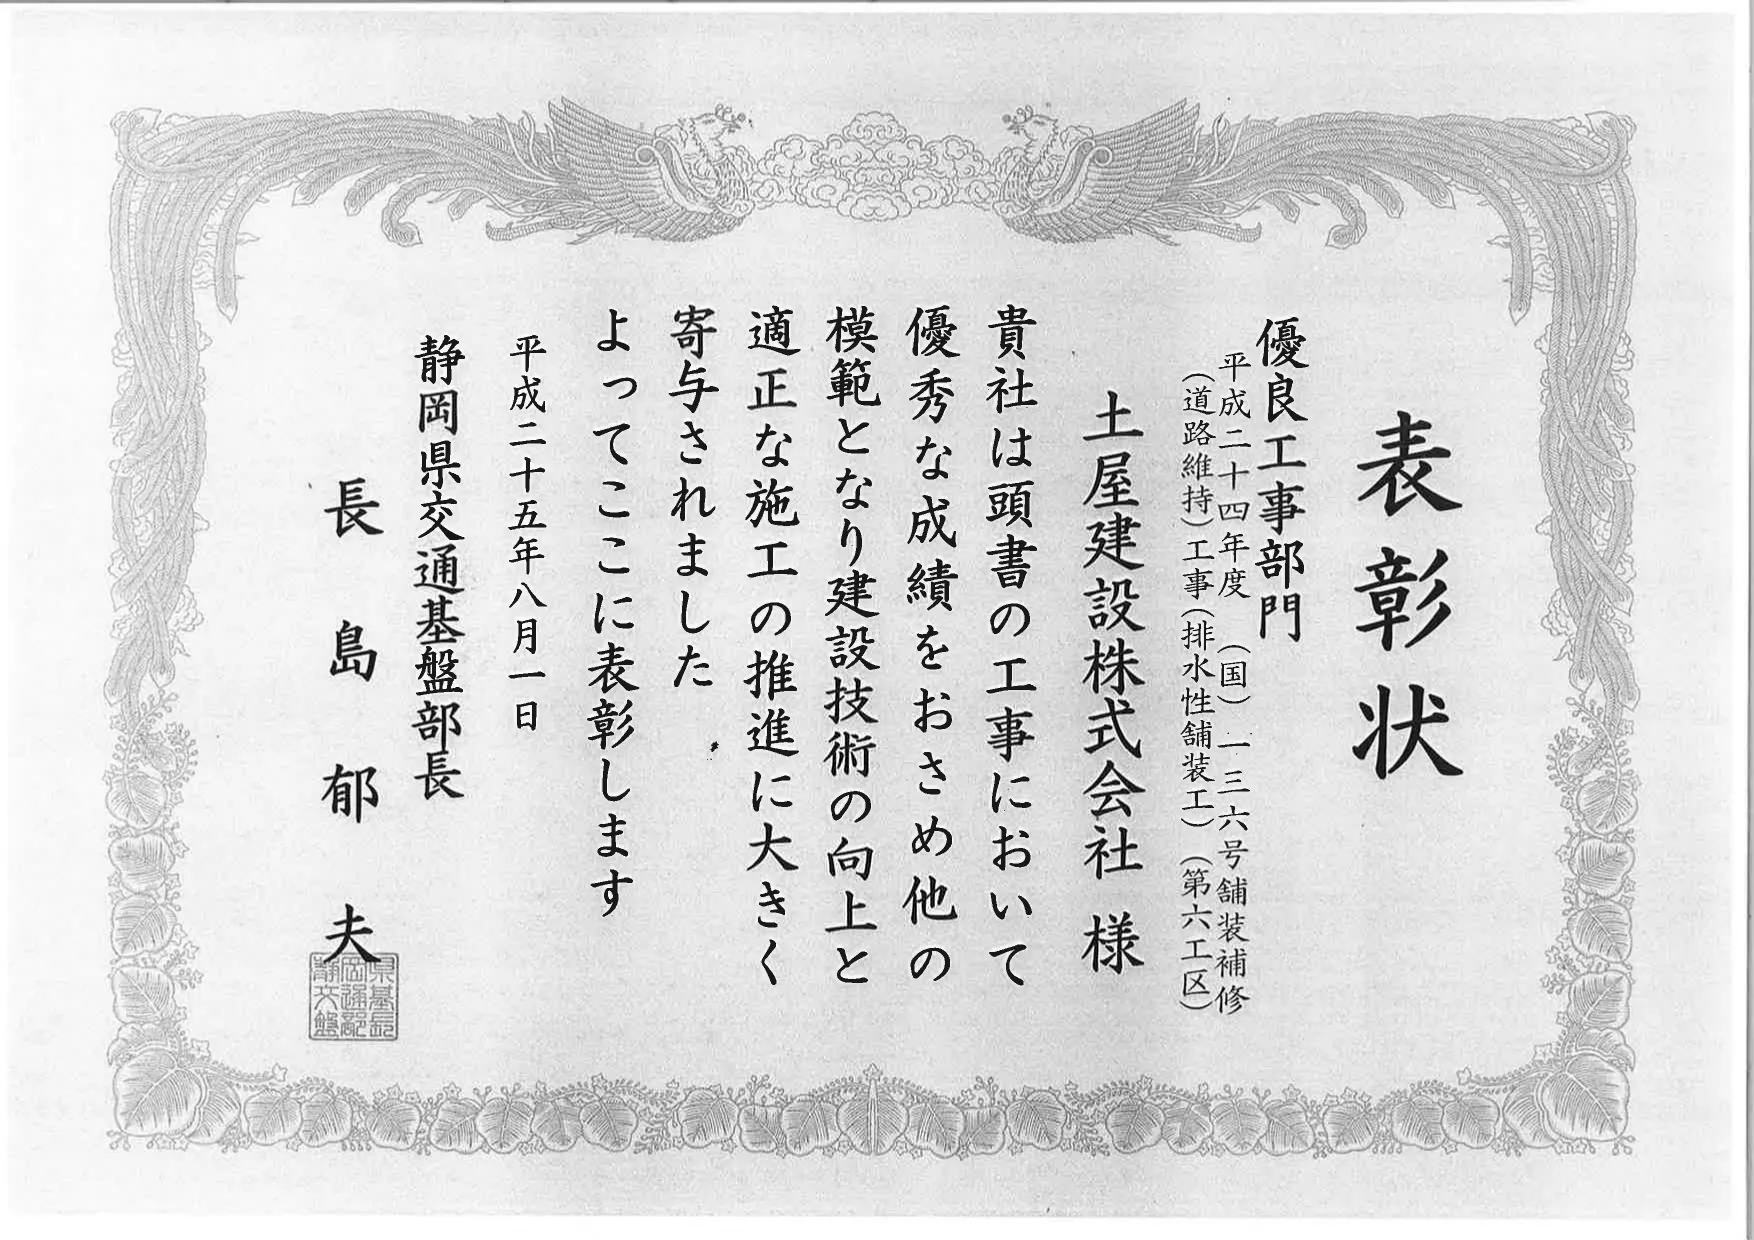 表彰状
優良工事部門
平成二十四年度 (国) 一三六号舗装補修
(道路維持)工事(排水性舗装工) (第六工区)
土屋建設株式会社 様
貴社は頭書の工事において
優秀な成績をおさめ他の
模範となり建設技術の向上と
適正な施工の推進に大きく
寄与されました
よってここに表彰します
平成二十五年八月一日
静岡県交通基盤部長
長島郁夫